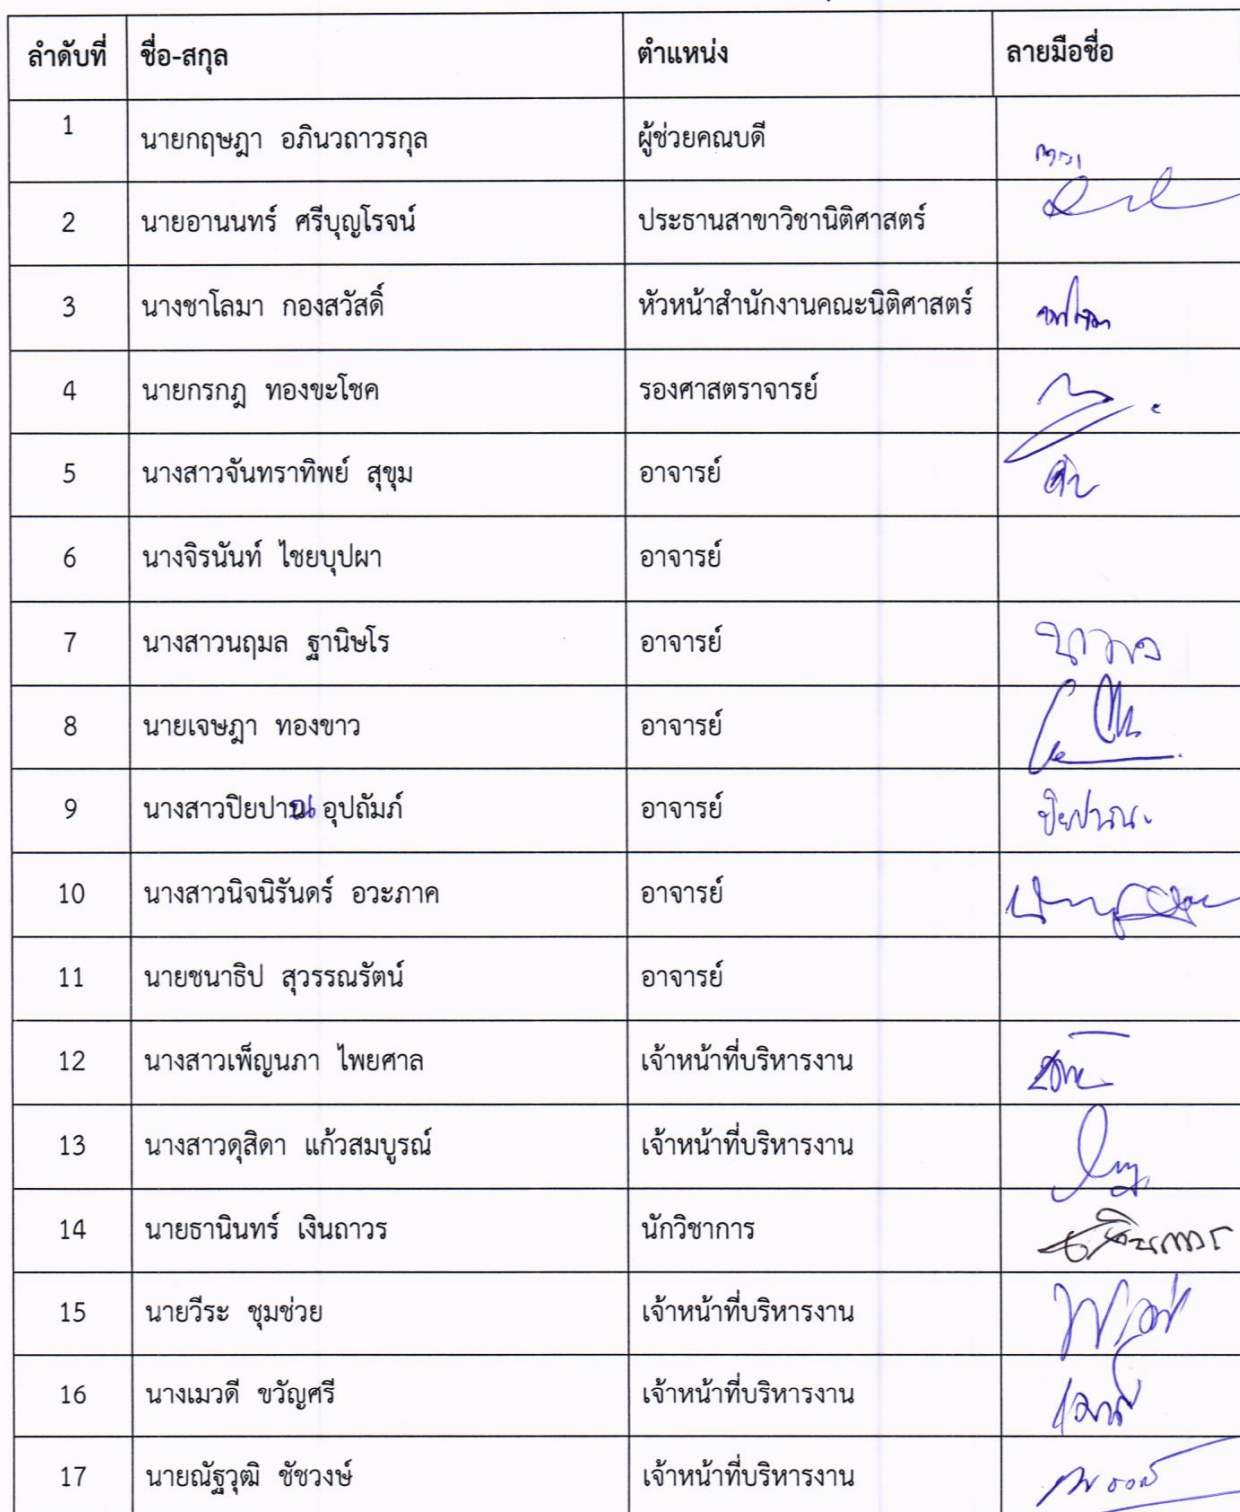 ลำดับที่ ชื่อ-สกุล ตำแหน่ง ลายมือชื่อ
1 นายกฤษฎา อภินวถาวรกุล ผู้ช่วยคณบดี
2 นายอานนทร์ ศรีบุญโรจน์ ประธานสาขาวิชานิติศาสตร์
3 นางชาโลมา กองสวัสดิ์ หัวหน้าสำนักงานคณะนิติศาสตร์
4 นายกรกฎ ทองขะโชค รองศาสตราจารย์
5 นางสาวจันทราทิพย์ สุขุม อาจารย์
6 นางจิรนันท์ ไชยบุปผา อาจารย์
7 นางสาวนฤมล ฐานิษโร อาจารย์ นฤมล
8 นายเจษฎา ทองขาว อาจารย์
9 นางสาวปิยปาณ อุปถัมภ์ อาจารย์ ปิยปาณ
10 นางสาวนิจนิรันดร์ อวะภาค อาจารย์
11 นายชนาธิป สุวรรณรัตน์ อาจารย์
12 นางสาวเพ็ญนภา ไพยศาล เจ้าหน้าที่บริหารงาน
13 นางสาวดุสิดา แก้วสมบูรณ์ เจ้าหน้าที่บริหารงาน
14 นายธานินทร์ เงินถาวร นักวิชาการ
15 นายวีระ ชุมช่วย เจ้าหน้าที่บริหารงาน
16 นางเมวดี ขวัญศรี เจ้าหน้าที่บริหารงาน
17 นายณัฐวุฒิ ชัชวงษ์ เจ้าหน้าที่บริหารงาน